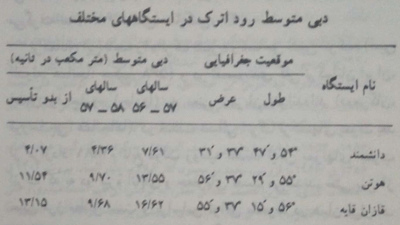 دبی متوسط رود اترک در ایستگاههای مختلف
نام ایستگاه موقعیت جغرافیایی دبی متوسط (متر مکعب در ثانیه)
طول عرض سالهای ۵۶ ــ ۵۷ سالهای ۵۷ ــ ۵۸ از بدو تأسیس
دانشمند ۵۴° و ۴۷′ ۳۷° و ۳۱′ ۷/۶۱ ۴/۳۶ ۴/۰۷
هوتن ۵۵° و ۲۹′ ۳۷° و ۵۶′ ۱۳/۵۵ ۹/۷۰ ۱۱/۵۴
قازان قایه ۵۶° و ۱۵′ ۳۷° و ۵۵′ ۱۶/۶۲ ۹/۶۸ ۱۳/۱۵